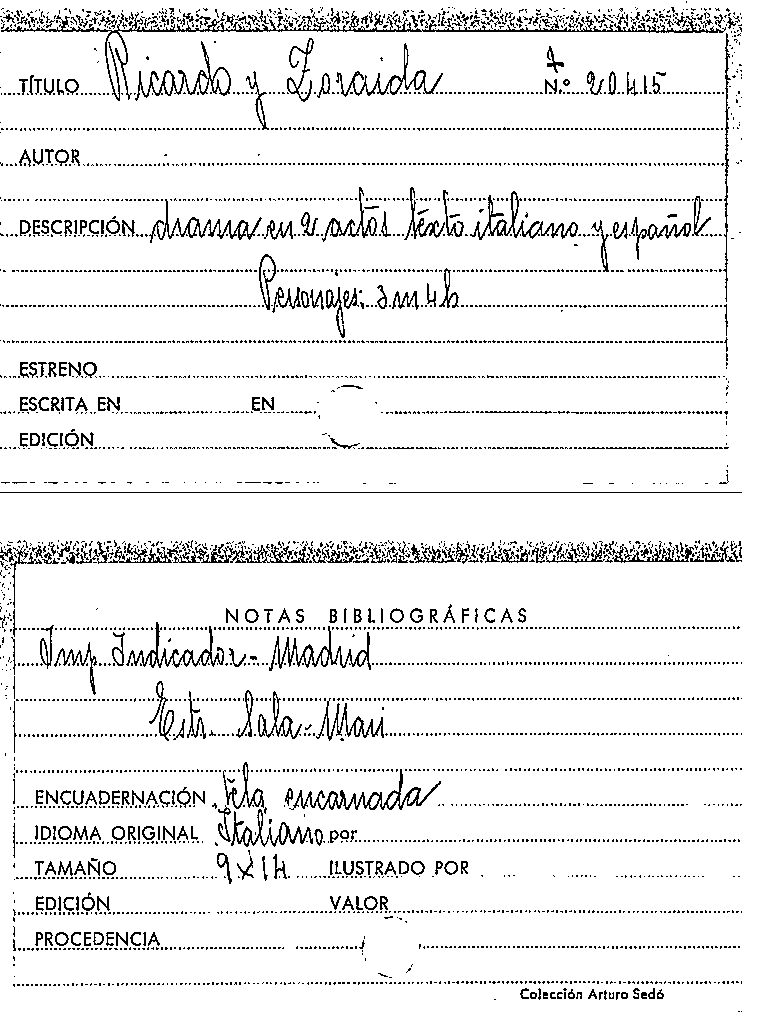 TÍTULO Ricardo y Zoraida N.º 20415
AUTOR
DESCRIPCIÓN drama en 2 actos texto italiano y español
Personajes: 3 m 4 h
ESTRENO
ESCRITA EN EN
EDICIÓN
NOTAS BIBLIOGRÁFICAS
Imp. Indicador - Madrid
Estr. Sala - Mari
ENCUADERNACIÓN tela encarnada
IDIOMA ORIGINAL Italiano por
TAMAÑO 9 x 14 ILUSTRADO POR
EDICIÓN VALOR
PROCEDENCIA
Colección Arturo Sedó